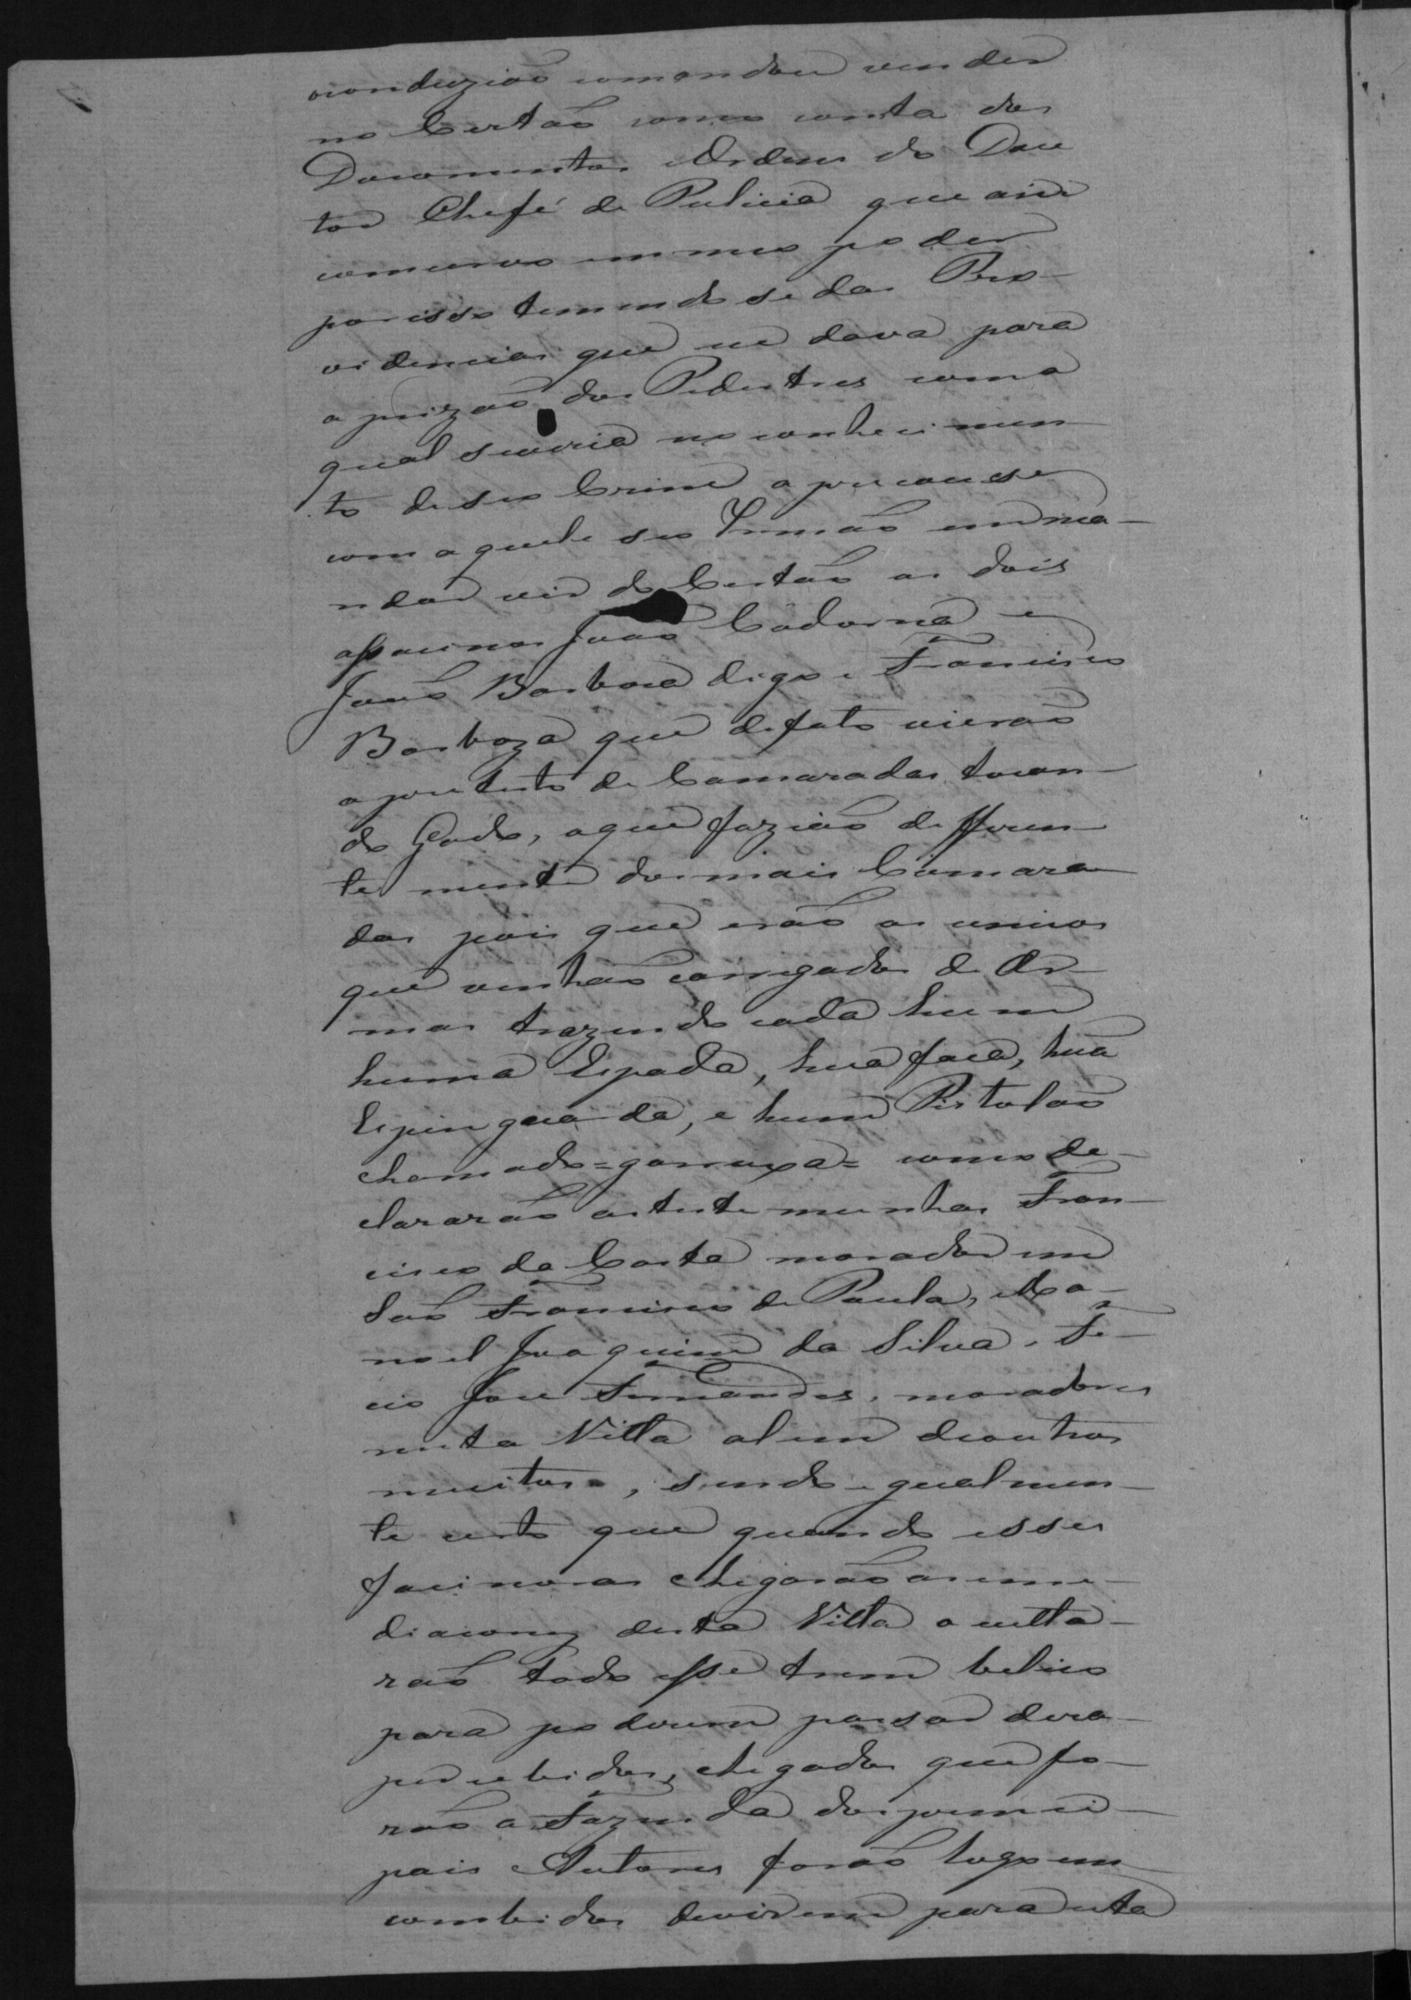 conduzião eomandou vender
no Certão como conta dos
Documentos e Ordens do Dou
tor Chefe de Pulicia que
conservo em meo poder
porisso temendo se das Pro-
videncias que se dava para
a prizão dos Pedestres com a
qual seviria no conhecimen
to de seo Crime
com aquele seo Irmão em ma-
ndar vir do Certão os dois
assacinos João Cadorna e
João Barboza digo e Francisco
Barboza que defato vierão
a pretesto de Camaradas tocan-
do Gado, o que fazião differen-
te mente dos mais Camara-
das pois que erão os unicos
que vinhão carregados de Ar-
mas trazendo cada hum
huma Espada, hua faca, hua
Espinguarda, e hum Pistolão
chamado = garruxa = como de-
clararão as testemunhas Fran-
cisco da Costa morador em
São Francisco de Paula, Ma-
noel Joaquim da Silva, 
José Fernandes, moradores
nesta Villa alem deoutros
muitos, sendo igualmen-
te certo que quando esses
facinoras chegarão as ime-
diacoens desta Villa oculta-
rão todo esse trem belico
para poderem passar desa-
percebidos, chegados que fo-
rão a Fazenda dos princi-
pais Autores forão logo em
cumbidos devirem para esta